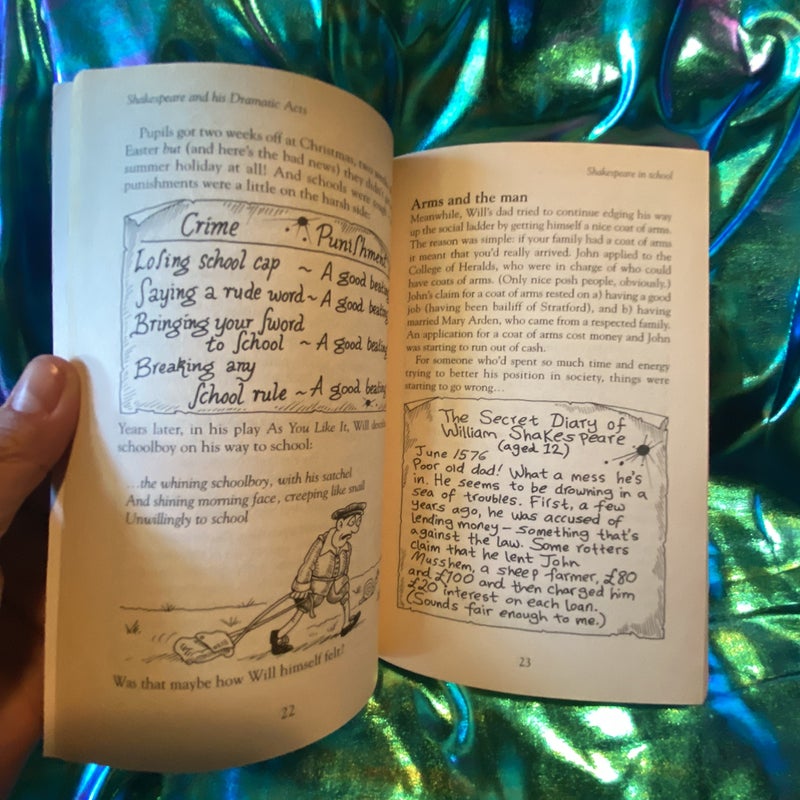 Shakespeare and his Dramatic Acts
Pupils got two weeks off at Christmas, two weeks
Easter but (and here's the bad news) they didn't
summer holiday at all! And schools were tough
punishments were a little on the harsh side:
Crime
Puniſhment
Loſing school cap ~ A good beating
Saying a rude word ~ A good beating
Bringing your ſword
to ſchool ~ A good beating
Breaking any
ſchool rule ~ A good beating
Years later, in his play As You Like It, Will
schoolboy on his way to school:
...the whining schoolboy, with his satchel
And shining morning face, creeping like snail
Unwillingly to school
Was that maybe how Will himself felt?
22
Shakespeare in school
Arms and the man
Meanwhile, Will's dad tried to continue edging his way
up the social ladder by getting himself a nice coat of arms.
The reason was simple: if your family had a coat of arms
it meant that you'd really arrived. John applied to the
College of Heralds, who were in charge of who could
have coats of arms. (Only nice posh people, obviously.)
John's claim for a coat of arms rested on a) having a good
job (having been bailiff of Stratford), and b) having
married Mary Arden, who came from a respected family.
An application for a coat of arms cost money and John
was starting to run out of cash.
For someone who'd spent so much time and energy
trying to better his position in society, things were
starting to go wrong...
The Secret Diary of
William Shakespeare
(aged 12)
June 1576
Poor old dad! What a mess he's
in. He seems to be drowning in a
sea of troubles. First, a few
years ago, he was accused of
lending money – something that's
against the law. Some rotters
claim that he lent John
Musshem, a sheep farmer, £80
and £100 and then charged him
£20 interest on each loan.
(Sounds fair enough to me.)
23